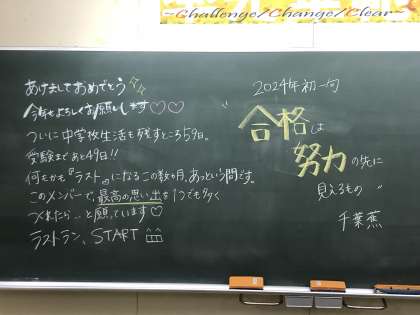 ~Challenge/Change/Clear~
あけましておめでとう
今年もよろしくお願いします♡♡
ついに中学校生活も残すところ59日。
受験まであと49日!!
何もかも『ラスト』になるこの数ヶ月、あっという間です。
このメンバーで、最高の思い出を1つでも多く
つくれたら..と願っています♡
ラストラン、START
2024年初一句
"合格は
努力の先に
見えるもの"
千葉蕉